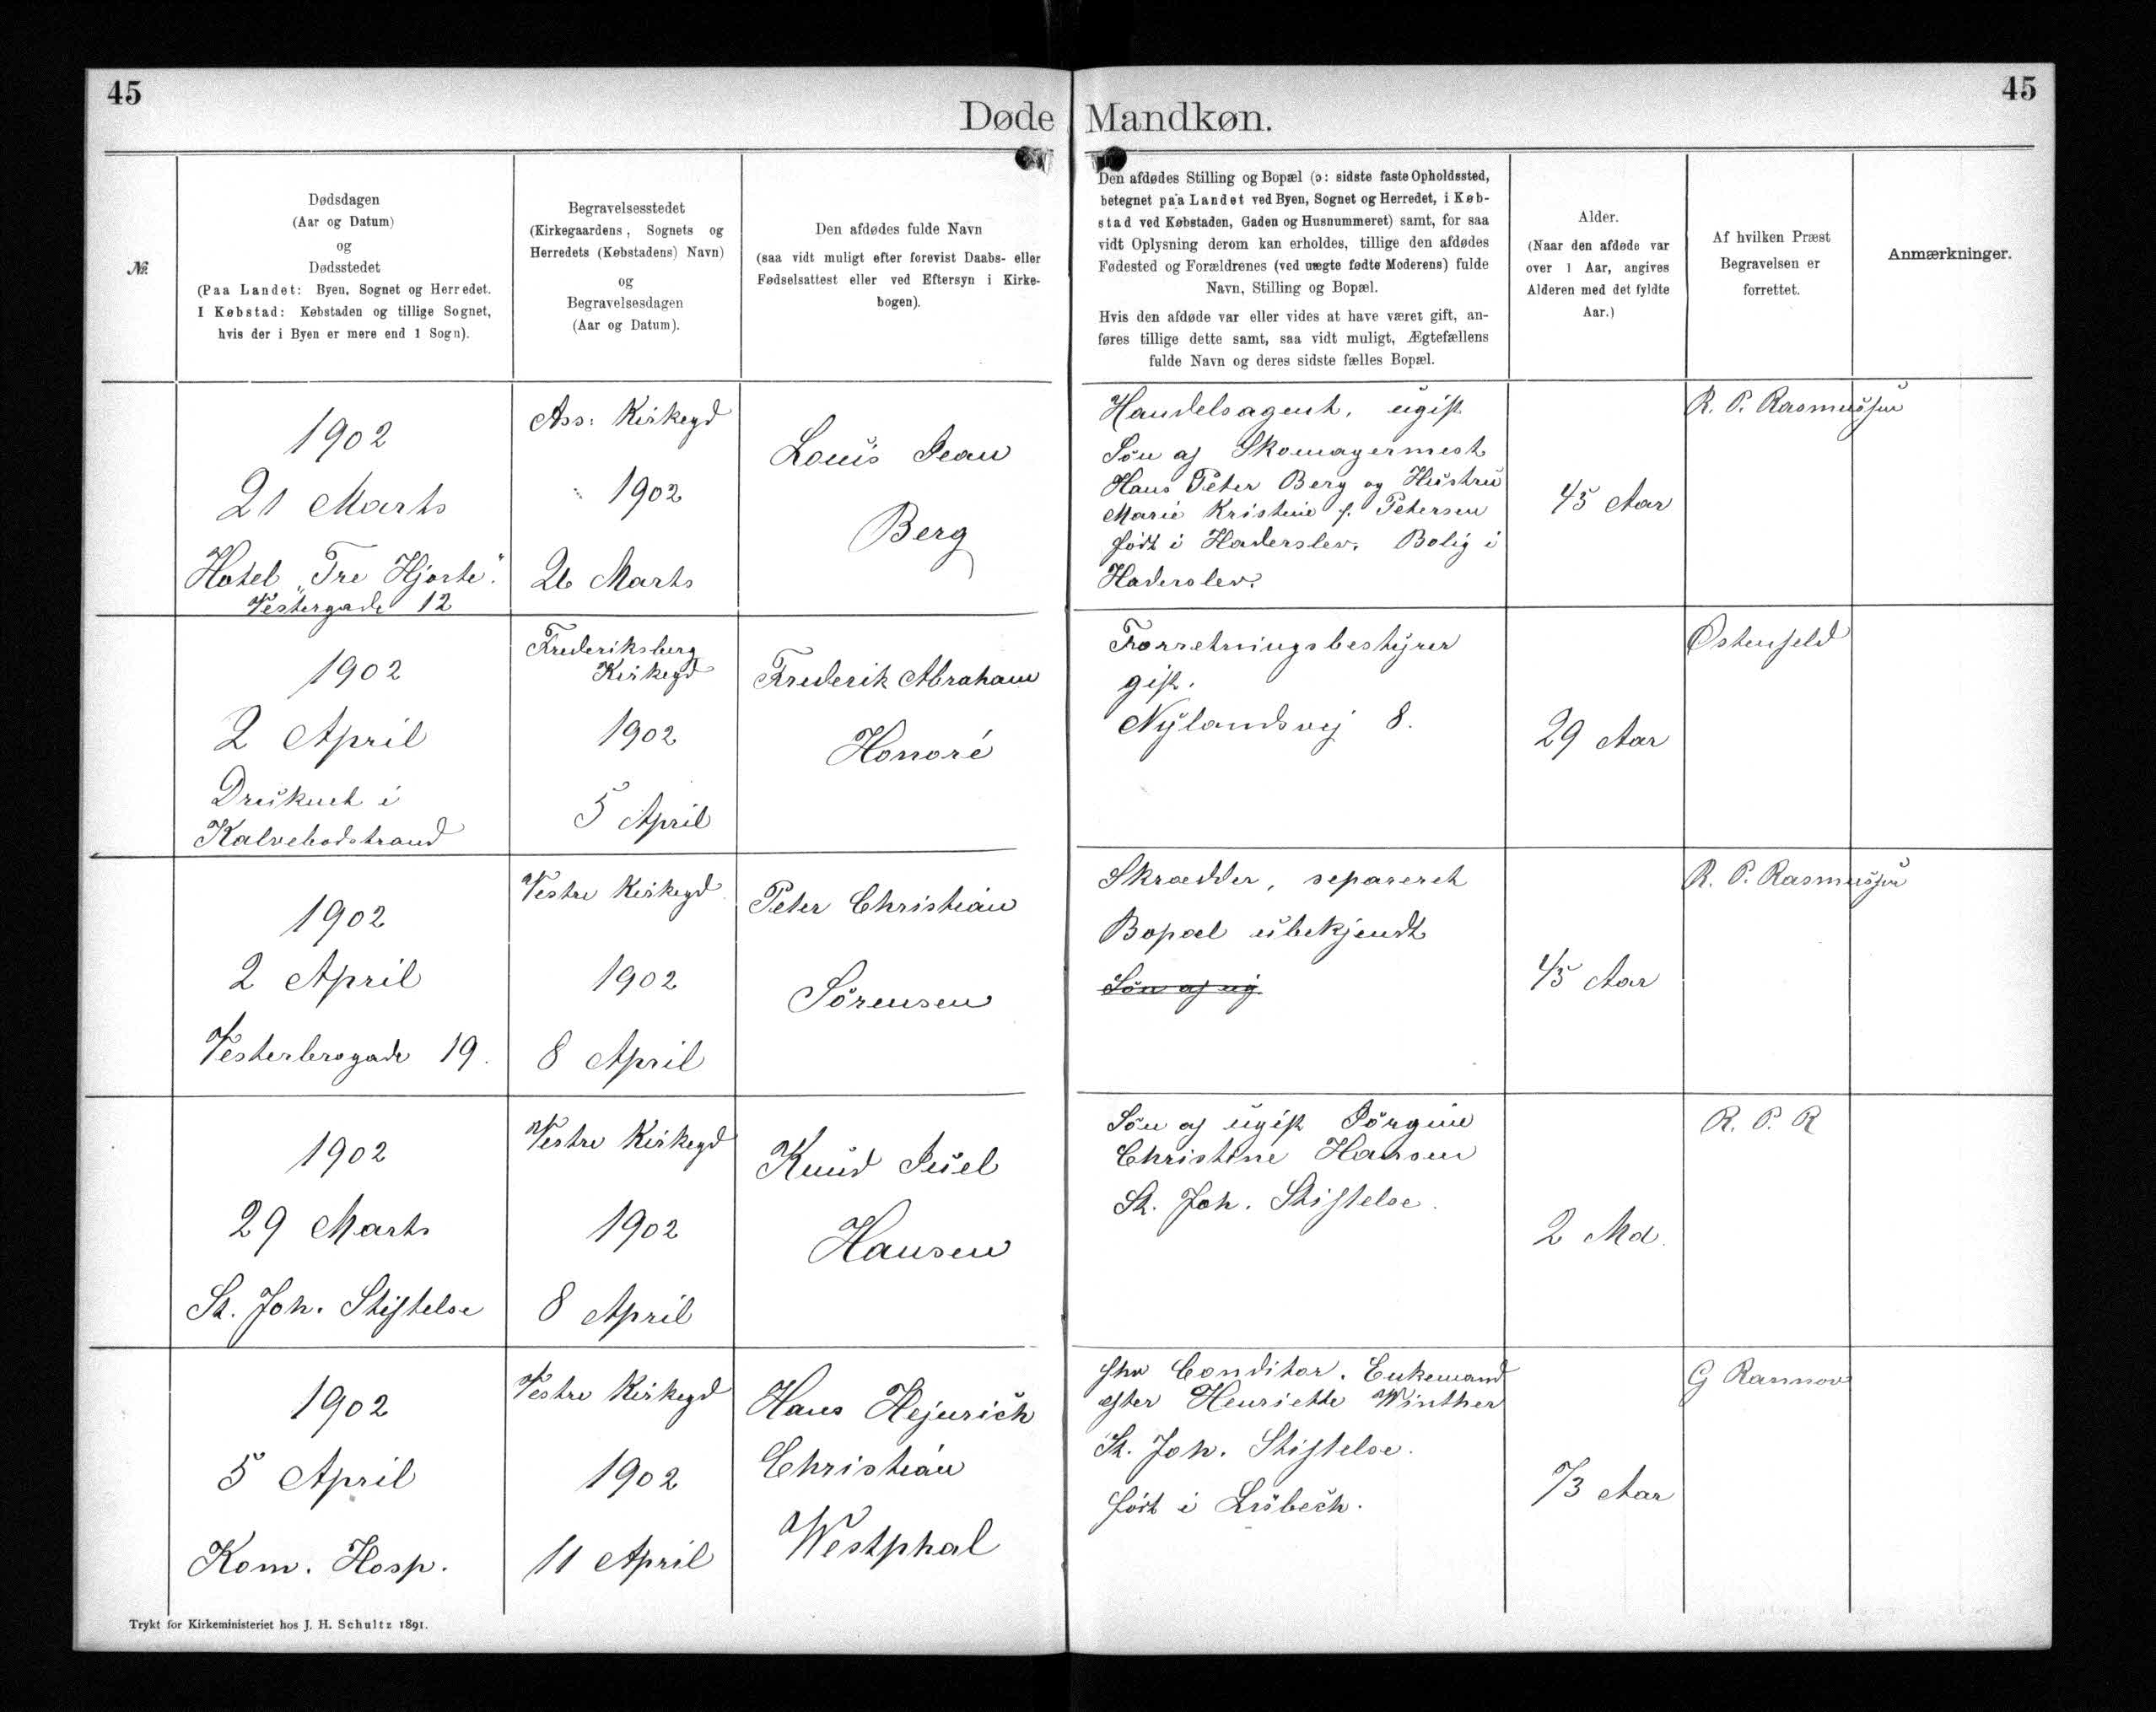 45
45
Døde Mandkøn.
№
Dødsdagen
(Aar og Datum)
og
Dødsstedet
(Paa Landet: Byen, Sognet og Herredet.
I Købstad: Købstaden og tillige Sognet,
hvis der i Byen er mere end 1 Sogn).
Begravelsesstedet
(Kirkegaardens, Sognets og
Herredets (Købstadens) Navn)
og
Begravelsesdagen
(Aar og Datum).
Den afdødes fulde Navn
(saa vidt muligt efter forevist Daabs- eller
Fødselsattest eller ved Eftersyn i Kirke-
bogen).
Den afdødes Stilling og Bopæl (ɔ: sidste faste Opholdssted,
betegnet paa Landet ved Byen, Sognet og Herredet, i Køb-
stad ved Købstaden, Gaden og Husnummeret) samt, for saa
vidt Oplysning derom kan erholdes, tillige den afdødes
Fødested og Forældrenes (ved uægte fødte Moderens) fulde
Navn, Stilling og Bopæl.
Hvis den afdøde var eller vides at have været gift, an-
føres tillige dette samt, saa vidt muligt, Ægtefællens
fulde Navn og deres sidste fælles Bopæl.
Alder.
(Naar den afdøde var
over 1 Aar, angives
Alderen med det fyldte
Aar.)
Af hvilken Præst
Begravelsen er
forrettet.
Anmærkninger.
1902
21 Marts
Hotel "Tre Hjorte".
Vestergade 12
Ass: Kirkegd
1902
26 Marts
Louis Jean
Berg
Handelsagent, ugift
Søn af Skomagermest
Hans Peter Berg og Hustru
Marie Kristine f. Petersen
født i Haderslev. Bolig i
Haderslev.
45 Aar
R. P. Rasmussen
1902
2 April
Druknet i
Kalvebodstrand
Frederiksberg
Kirkegd
1902
5 April
Frederik Abraham
Honoré
Forretningsbestyrer
gift.
Nylandsvej 8.
29 Aar
Ostenfeld
1902
2 April
Vesterbrogade 19.
Vestre Kirkegd
1902
8 April
Peter Christian
Sörensen
Skrædder, separeret
Bopæl ubekjendt
Søn af ug
45 Aar
R. P. Rasmussen
1902
29 Marts
St. Joh. Stiftelse
Vestre Kirkegd
1902
8 April
Knud Juel
Hansen
Søn af ugift Jörgine
Christine Hansen
St. Joh. Stiftelse.
2 Md.
R. P. R
1902
5 April
Kom. Hosp.
Vestre Kirkegd
1902
11 April
Hans Hejnrich
Christian
Westphal
fhv Conditor. Enkemand
efter Henriette Winther
St. Joh. Stiftelse.
født i Lübech.
73 Aar
G Rannov
Trykt for Kirkeministeriet hos J. H. Schultz 1891.